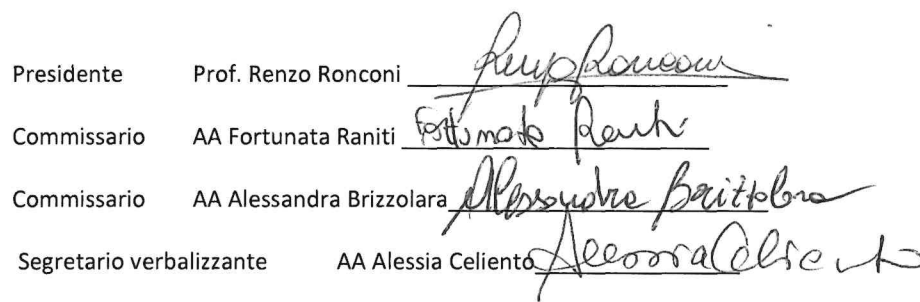 Presidente Prof. Renzo Ronconi Renzo Ronconi
Commissario AA Fortunata Raniti Fortunata Raniti
Commissario AA Alessandra Brizzolara Alessandra Brizzolara
Segretario verbalizzante AA Alessia Celiento Alessia Celiento